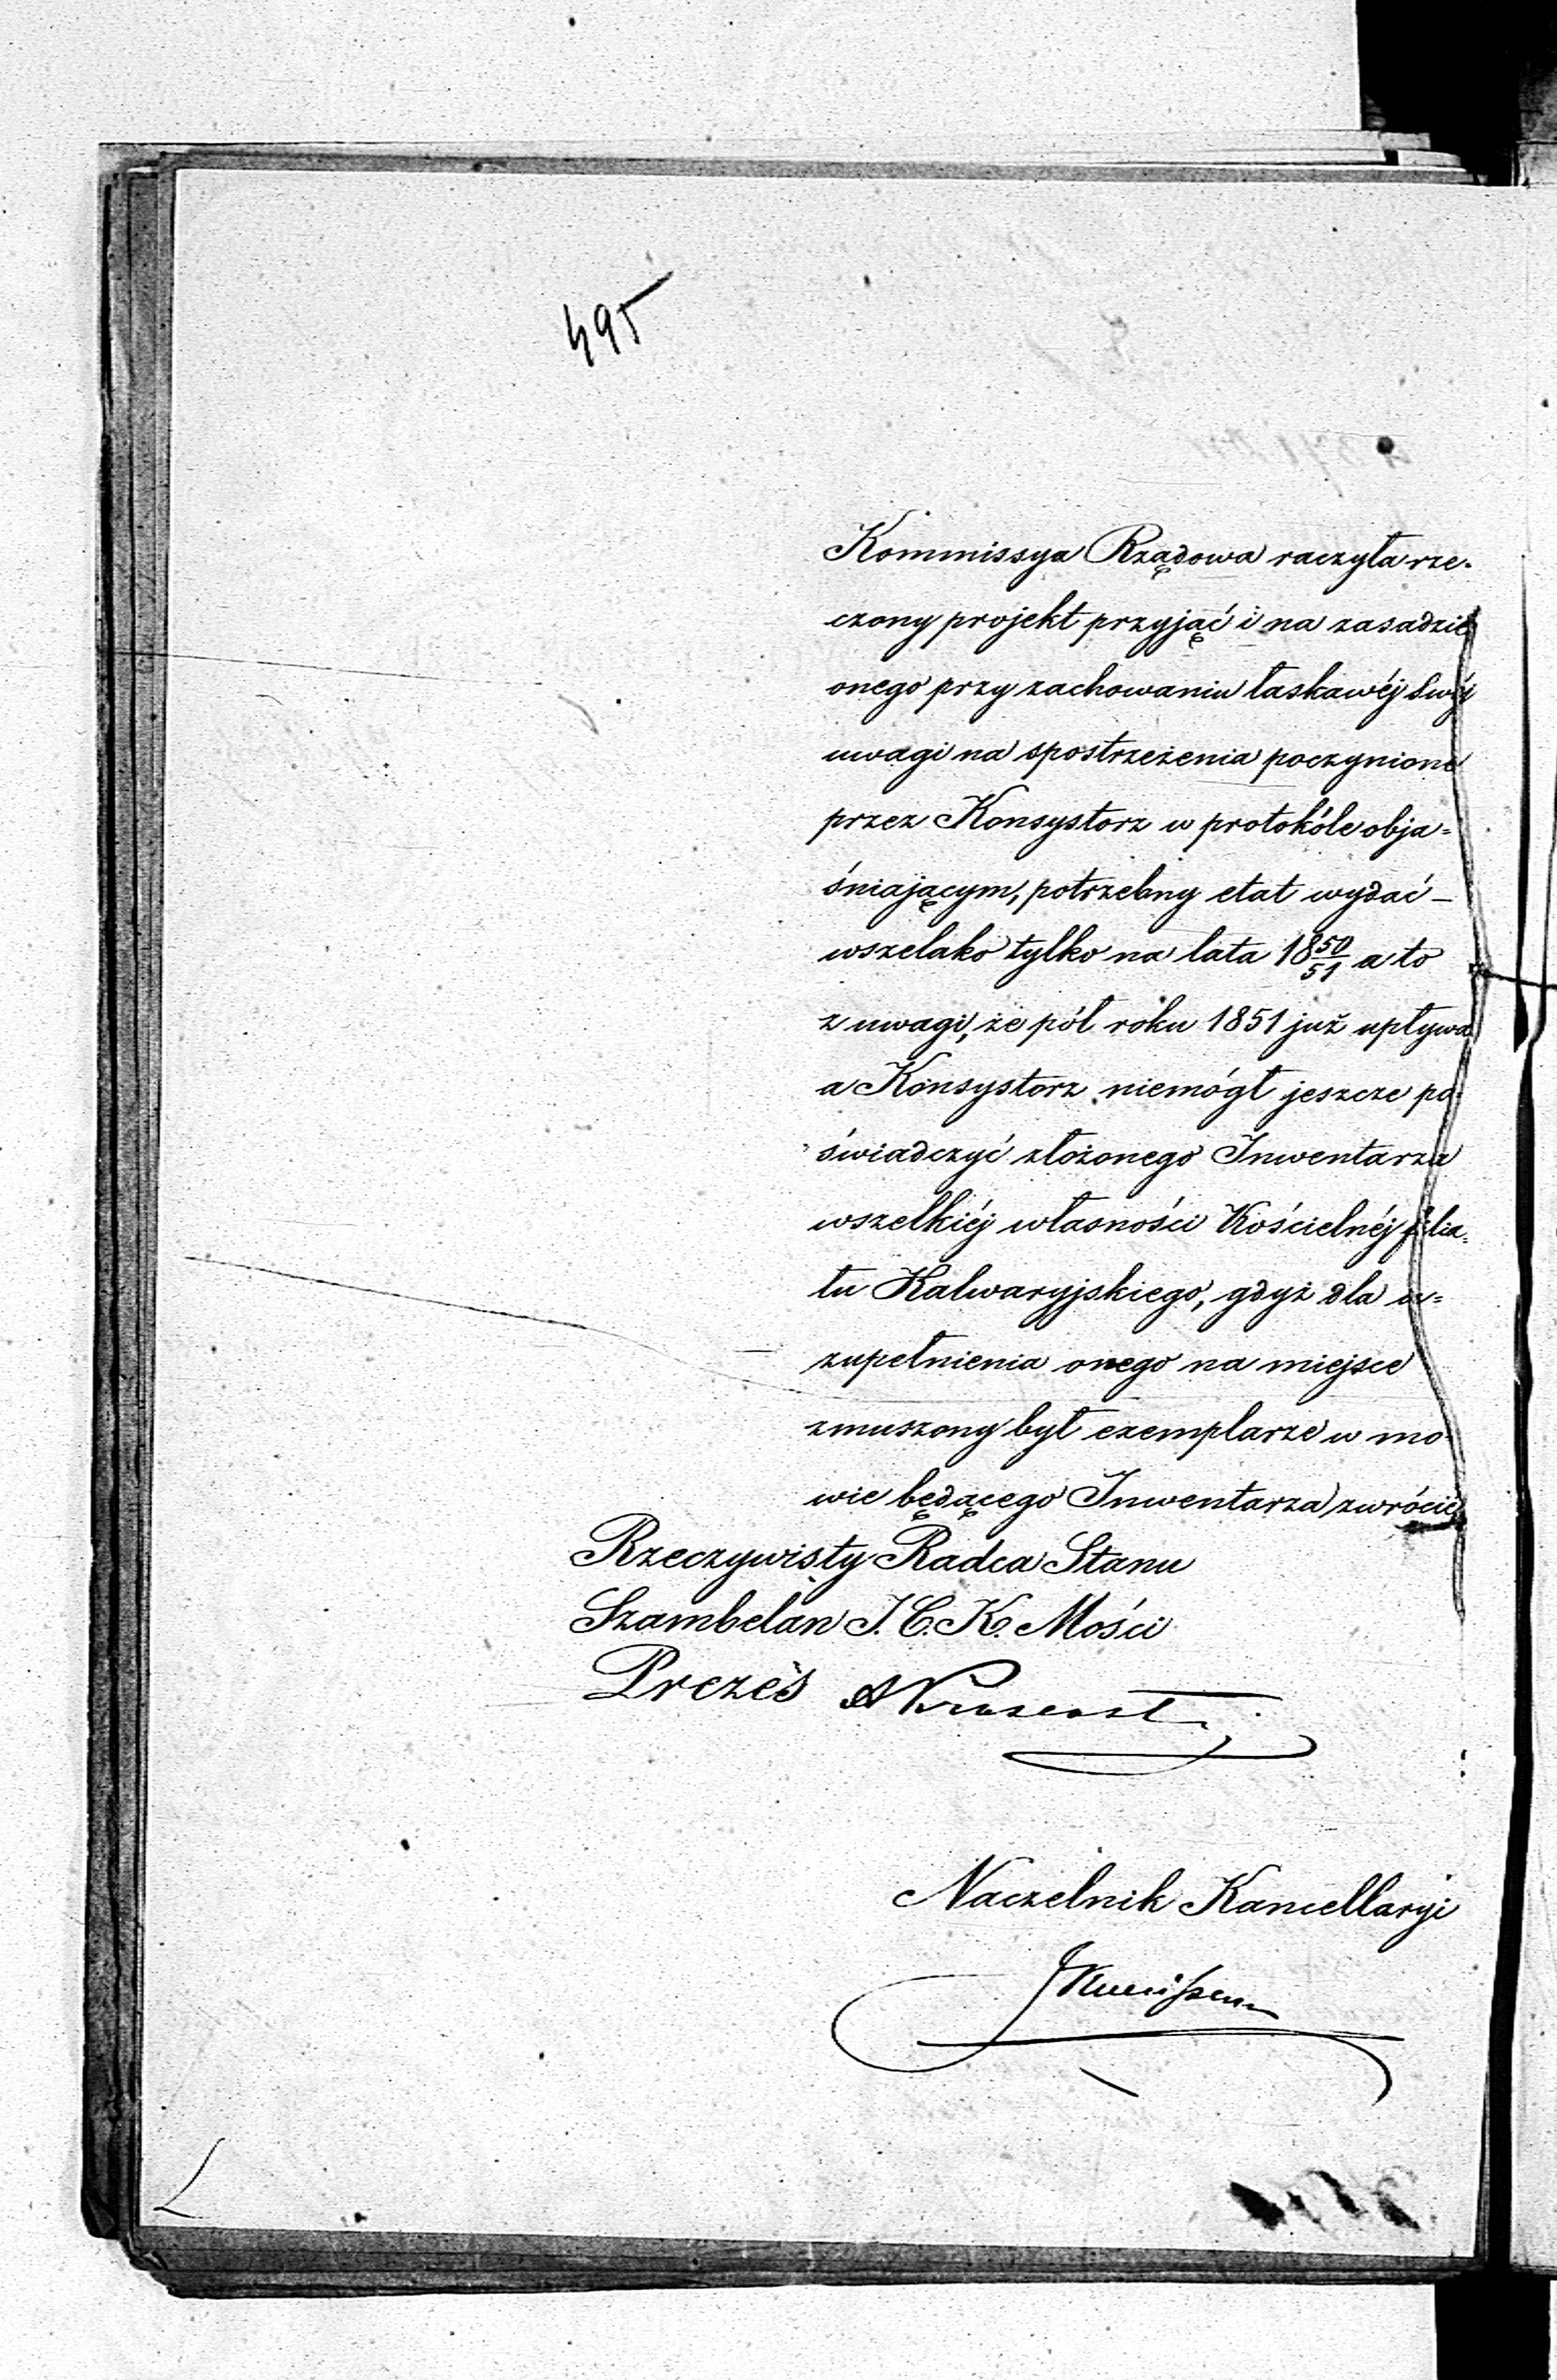 495
Kommissya Rządowa raczyła rze-
czony projekt przyjąć i na zasadzie
onego przy zachowaniu łaskawéj Swéj
uwagi na spostrzeżenia poczynione
przez Konsystorz w protokóle obja=
śniającym, potrzebny etat wydać –
wszelako tylko na lata 18 50/51 a to
z uwagi, że pół roku 1851 już upływa
a Konsystorz niemógł jeszcze po-
świadczyć złożonego Inwentarza
wszelkiéj własności Kościelnéj filia=
tu Kalwaryjskiego, gdyż dla u=
zupełnienia onego na miejsce
zmuszony był exemplarze w mo-
wie będącego Inwentarza zwrócić
Rzeczywisty Radca Stanu
Szambelan J. C. K. Mości
Prezes
Naczelnik Kancellaryi